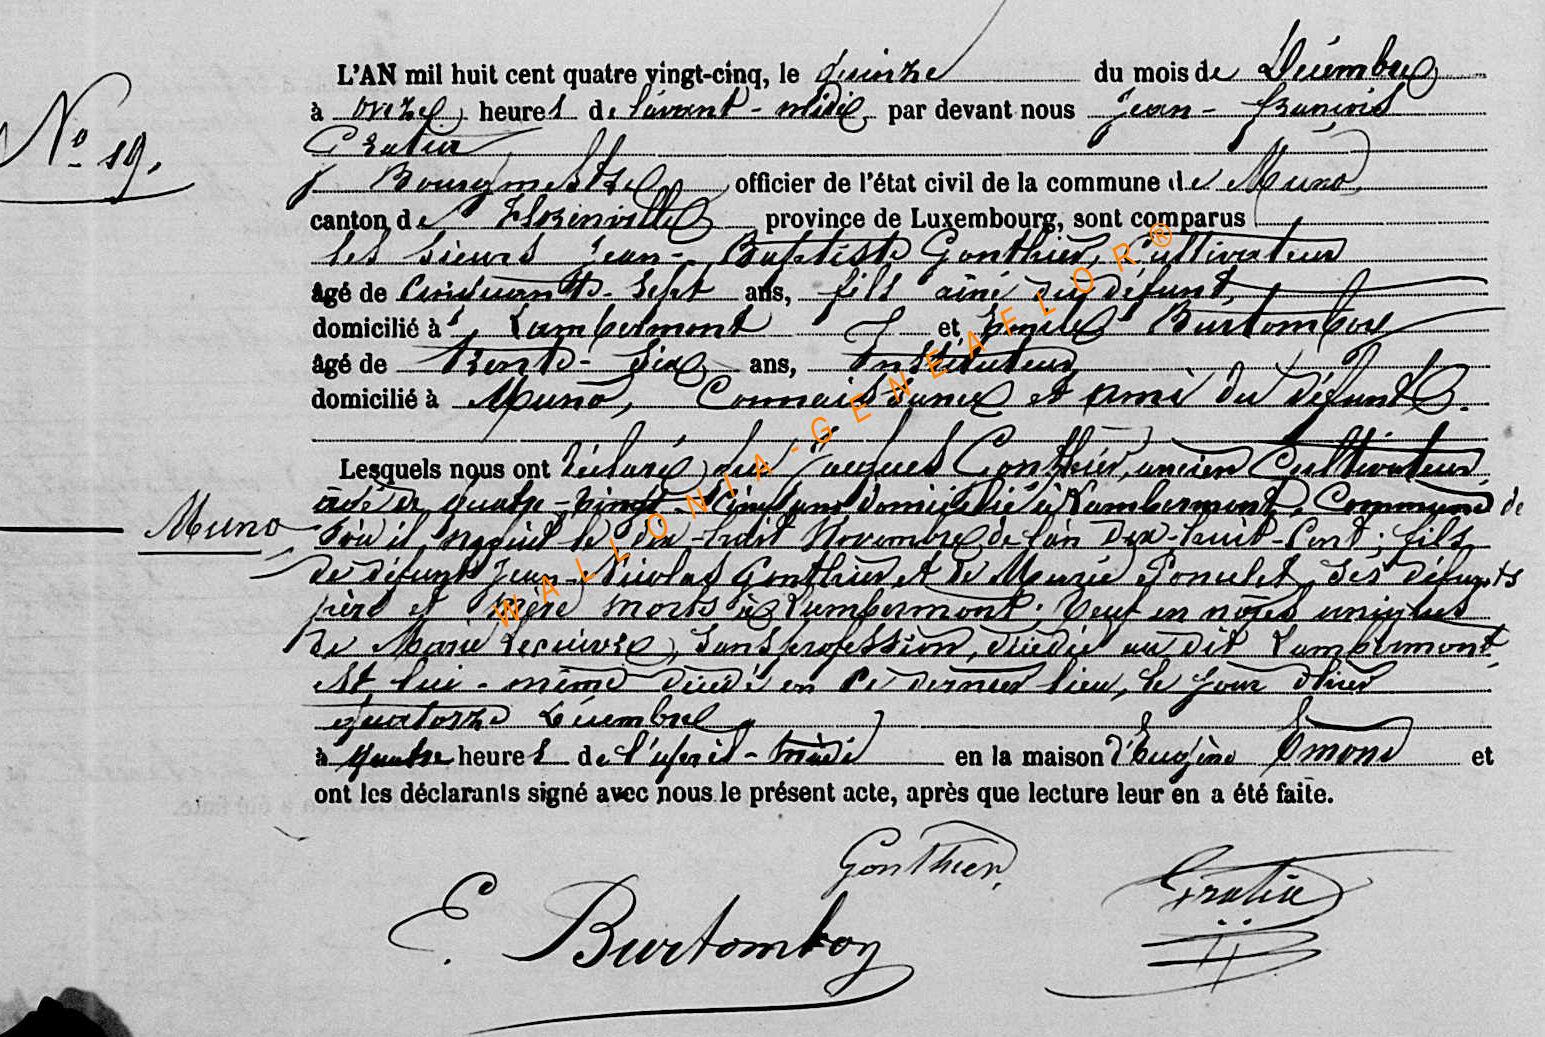 L'AN mil huit cent quatre vingt-cinq, le quinze du mois de Décembre
à onze heures de l'avant-midi par devant nous Jean-François
Gratia
Bourgmestre officier de l'état civil de la commune de Muno
canton de Florenville province de Luxembourg, sont comparus
les sieurs Jean-Baptiste Gonthier, Cultivateur
âgé de Cinquante-sept ans, fils ainé du défunt,
domicilié à Lambermont et Emile Burtomboy
âgé de trente-six ans, Instituteur
domicilié à Muno, Connaissance et ami du défunt.
Lesquels nous ont déclaré que Jacques Gonthier, ancien Cultivateur
âgé de quatre-vingt-cinq ans domicilié à Lambermont, Commune de
Nº 19.
Muno
d'où il naquit le dix-huit Novembre de l'an Dix-huit-Cent; fils
de défunts Jean-Nicolas Gonthier et de Marie Poncelet, ses défunts
père et mère morts à Lambermont; Veuf en nôces uniques
de Marie Lecuivre, sans profession, décédée au dit Lambermont,
est lui-même décédé en ce dernier lieu, le jour d'hier
quatorze Décembre
à quatre heures de l'après-midi en la maison d'Eugène Emond et
ont les déclarants signé avec nous le présent acte, après que lecture leur en a été faite.
Gonthier,
Gratia
E. Burtomboy
WALLONIA-GENEAFLOR®